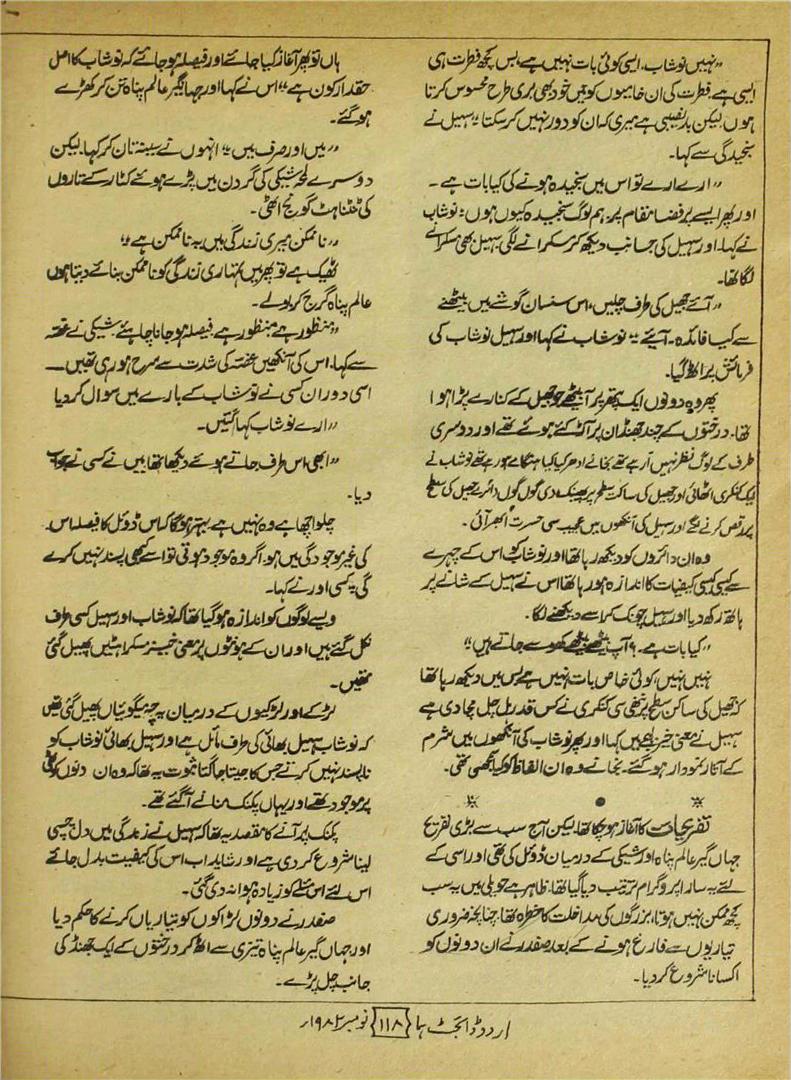 ”نہیں نوشاب، ایسی کوئی بات نہیں ہے، بس کچھ فطرت ہی
ایسی ہے۔ فطرت کی ان خامیوں کو میں خود بھی بری طرح محسوس کرتا
ہوں لیکن بدنصیبی ہے میری کہ ان کو دور نہیں کر سکتا“ سہیل نے
سنجیدگی سے کہا۔
”ارے ارے تو اس میں سنجیدہ ہونے کی کیا بات ہے ۔
اور پھر ایسے پرفضا مقام پر، ہم لوگ سنجیدہ کیوں ہوں“ نوشاب
نے کہا۔ اور سہیل کی جانب دیکھ کر مسکرانے لگی سہیل بھی مسکرانے
لگا تھا۔
”آئیے جھیل کی طرف چلیں، اس سنسان گوشے میں بیٹھنے
سے کیا فائدہ۔ آیئے“ نوشاب نے کہا اور سہیل نوشاب کی
فرمائش پر اٹھ گیا۔
پھر وہ دونوں ایک پتھر پر آ بیٹھے جو جھیل کے کنارے پڑا ہوا
تھا۔ درختوں کے چند جھنڈ ان پر آگے ہوئے تھے اور دوسری
طرف کے لوگ نظر نہیں آ رہے تھے نجانے ادھر کیا کیا ہنگامے ہو رہے تھے نوشاب نے
ایک کنکری اٹھائی اور جھیل کی ساکت سطح پر پھینک دی گول گول دائرے جھیل کی سطح
پر رقص کرنے لگے اور سہیل کی آنکھوں میں عجیب سی حسرت ابھر آئی۔
وہ ان دائروں کو دیکھ رہا تھا اور نوشاب کو اس کے چہرے
سے کیسی کیسی کیفیات کا اندازہ ہو رہا تھا اس نے سہیل کے شانے پر
ہاتھ رکھ دیا اور سہیل چونک کر اسے دیکھنے لگا۔
”کیا بات ہے۔؟ آپ بیٹھے بیٹھے کھو سے جاتے ہیں“
نہیں نہیں، کوئی خاص بات نہیں ہے بس میں دیکھ رہا تھا
کہ جھیل کی ساکن سطح پر ننھی سی کنکری نے کس قدر ہل چل مچا دی ہے
سہیل نے معنی خیز لہجے میں کہا اور پھر نوشاب کی آنکھوں میں شرم
کے آثار نمودار ہو گئے۔ نجانے وہ ان الفاظ کو کیا سمجھی تھی۔
تفریحات کا آغاز ہو چکا تھا۔ لیکن آج سب سے بڑی تفریح
جہاں گیر عالم پناہ اور شیکی کے درمیان ڈوئل کی تھی اور اسی کے
لئے یہ سارا پروگرام ترتیب دیا گیا تھا۔ ظاہر ہے حویلی میں یہ سب
کچھ ممکن نہیں ہوتا، بزرگوں کی مداخلت کا خطرہ تھا۔ چنانچہ ضروری
تیاریوں سے فارغ ہونے کے بعد صفدر نے ان دونوں کو
اکسانا شروع کر دیا۔
ہاں تو پھر آغاز کیا جائے اور فیصلہ ہو جائے کہ نوشاب کا اصل
حقدار کون ہے“ اس نے کہا اور جہانگیر عالم پناہ تن کر کھڑے
ہو گئے۔
”میں اور صرف میں“ انہوں نے سینہ تان کر کہا۔ لیکن
دوسرے لمحے شیکی کی گردن میں پڑے ہوئے گٹار کے تاروں
کی ٹنٹناہٹ گونج اٹھی۔
”ناممکن میری زندگی میں یہ ناممکن ہے“
ٹھیک ہے تو پھر میں تمہاری زندگی کو ناممکن بنائے دیتا ہوں
عالم پناہ گرج کر بولے۔
”منظور ہے منظور ہے فیصلہ ہو جانا چاہئے“ شیکی نے غصہ
سے کہا۔ اس کی آنکھیں غصہ کی شدت سے سرخ ہو رہی تھیں ۔
اسی دوران کسی نے نوشاب کے بارے میں سوال کر دیا
”ارے نوشاب کہاں گئیں۔
”ابھی اس طرف جاتے ہوئے دیکھا تھا میں نے کسی نے جواب
دیا۔
چلو اچھا ہے وہ نہیں ہے بہتر ہو گا کہ اس ڈوئل کا فیصلہ اس
کی غیر موجودگی میں ہو، اگر وہ موجود ہوتی تو اسے کبھی پسند نہیں کرے
گی“ کسی اور نے کہا۔
ویسے لوگوں کو اندازہ ہو گیا تھا کہ نوشاب اور سہیل کسی طرف
نکل گئے ہیں اور ان کے ہونٹوں پر معنی خیز مسکراہٹیں پھیل گئی
تھیں۔
لڑکے اور لڑکیوں کے درمیان یہ چہ میگوئیاں پھیل گئی تھیں
کہ نوشاب سہیل بھائی کی طرف مائل ہے اور سہیل بھائی نوشاب کو
ناپسند نہیں کرتے جس کا جیتا جاگتا ثبوت یہ تھا کہ وہ ان دنوں کوٹھی
پر موجود تھے اور یہاں پکنک منانے آ گئے تھے۔
پکنک پر آنے کا مقصد یہ تھا کہ سہیل نے زندگی میں دل چسپی
لینا شروع کر دی ہے اور شاید اب اس کی کیفیت بدل جائے
اس لئے اس مسئلے کو زیادہ ہوا نہ دی گئی۔
صفدر نے دونوں لڑاکوں کو تیاریاں کرنے کا حکم دیا
اور جہاں گیر عالم پناہ تیزی سے اٹھ کر درختوں کے ایک جھنڈ کی
جانب چل پڑے۔
اردو ڈائجسٹ ہما {۱۱۸} نومبر ۱۹۸۲ء